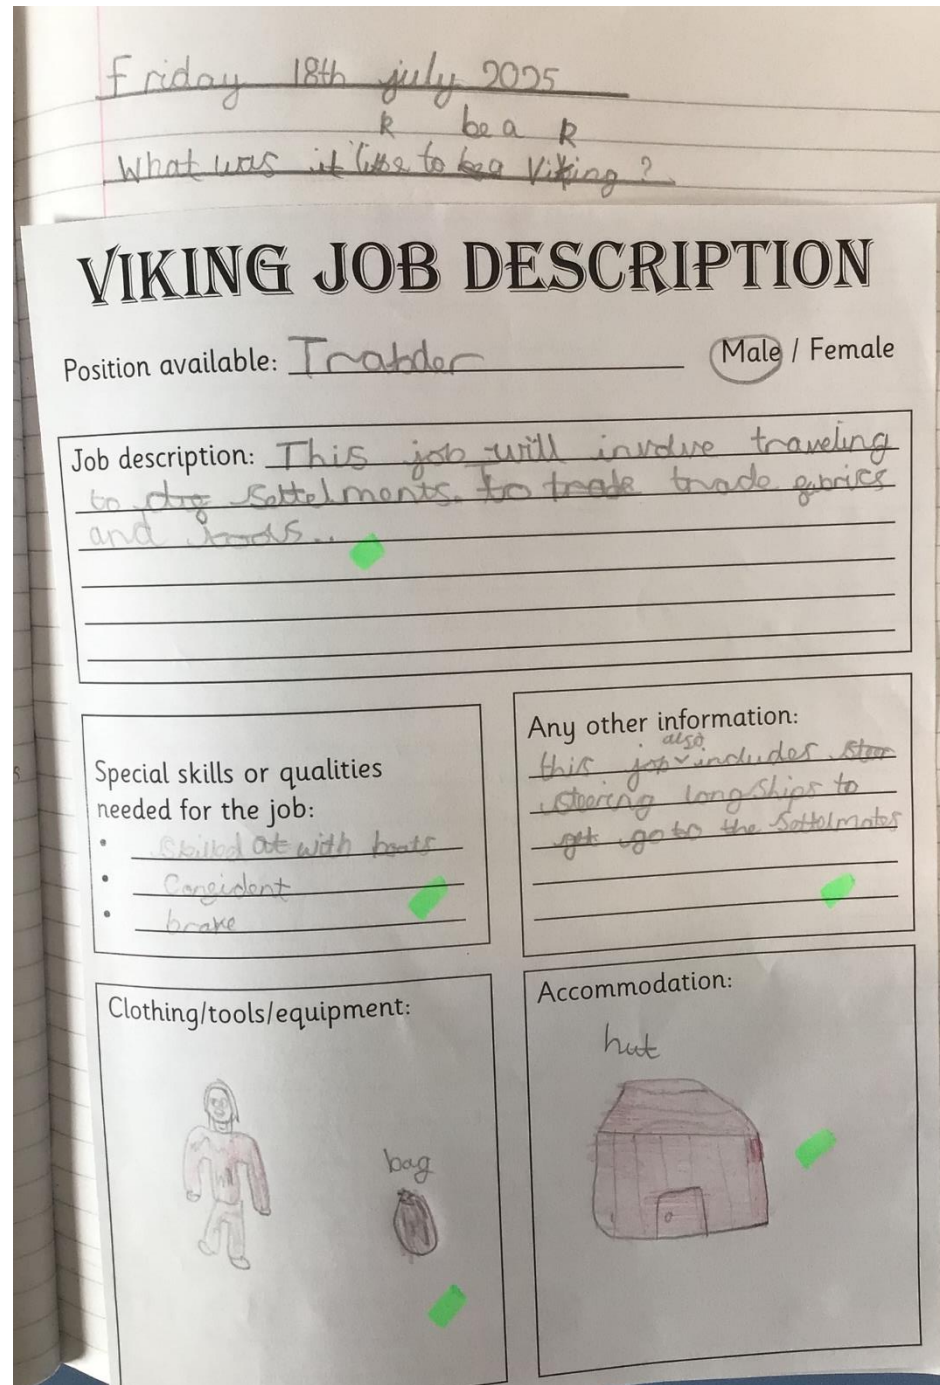 Friday 18th july 2025
k be a k
What was it like to be a Viking?
VIKING JOB DESCRIPTION
Position available: Trabder Male / Female
Job description: This job will involve traveling
to settelments. to trade trade fabrics
and foods..
Special skills or qualities
needed for the job:
• Skilled at with boats
• Confident
• brave
Any other information:
also
this job includes
steering longships to
get go to the settelmates
Clothing/tools/equipment:
bag
Accommodation:
hut